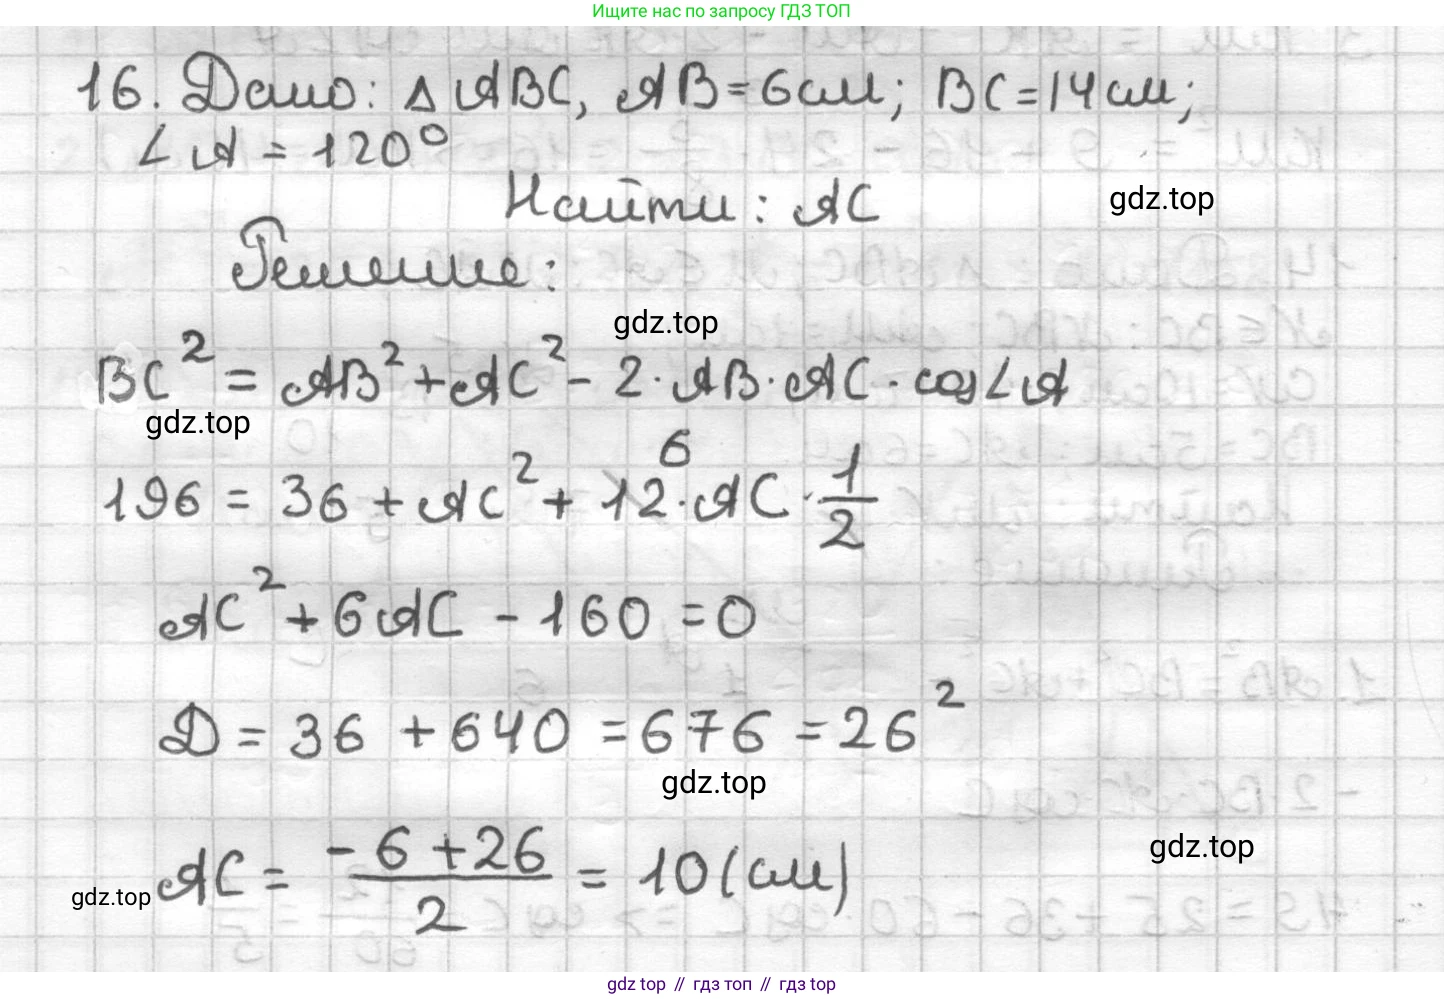 Ищите нас по запросу ГДЗ ТОП
16. Дано: Δ ABC, AB = 6 см; BC = 14 см;
∠A = 120°
Найти: AC
gdz.top
Решение:
gdz.top
BC² = AB² + AC² - 2 · AB · AC · cos∠A
gdz.top
6
196 = 36 + AC² + 12 · AC · 1/2
AC² + 6AC - 160 = 0
D = 36 + 640 = 676 = 26²
gdz.top
gdz.top
AC = (-6 + 26)/2 = 10 (см)
gdz.top
gdz.top // гдз топ // гдз.top